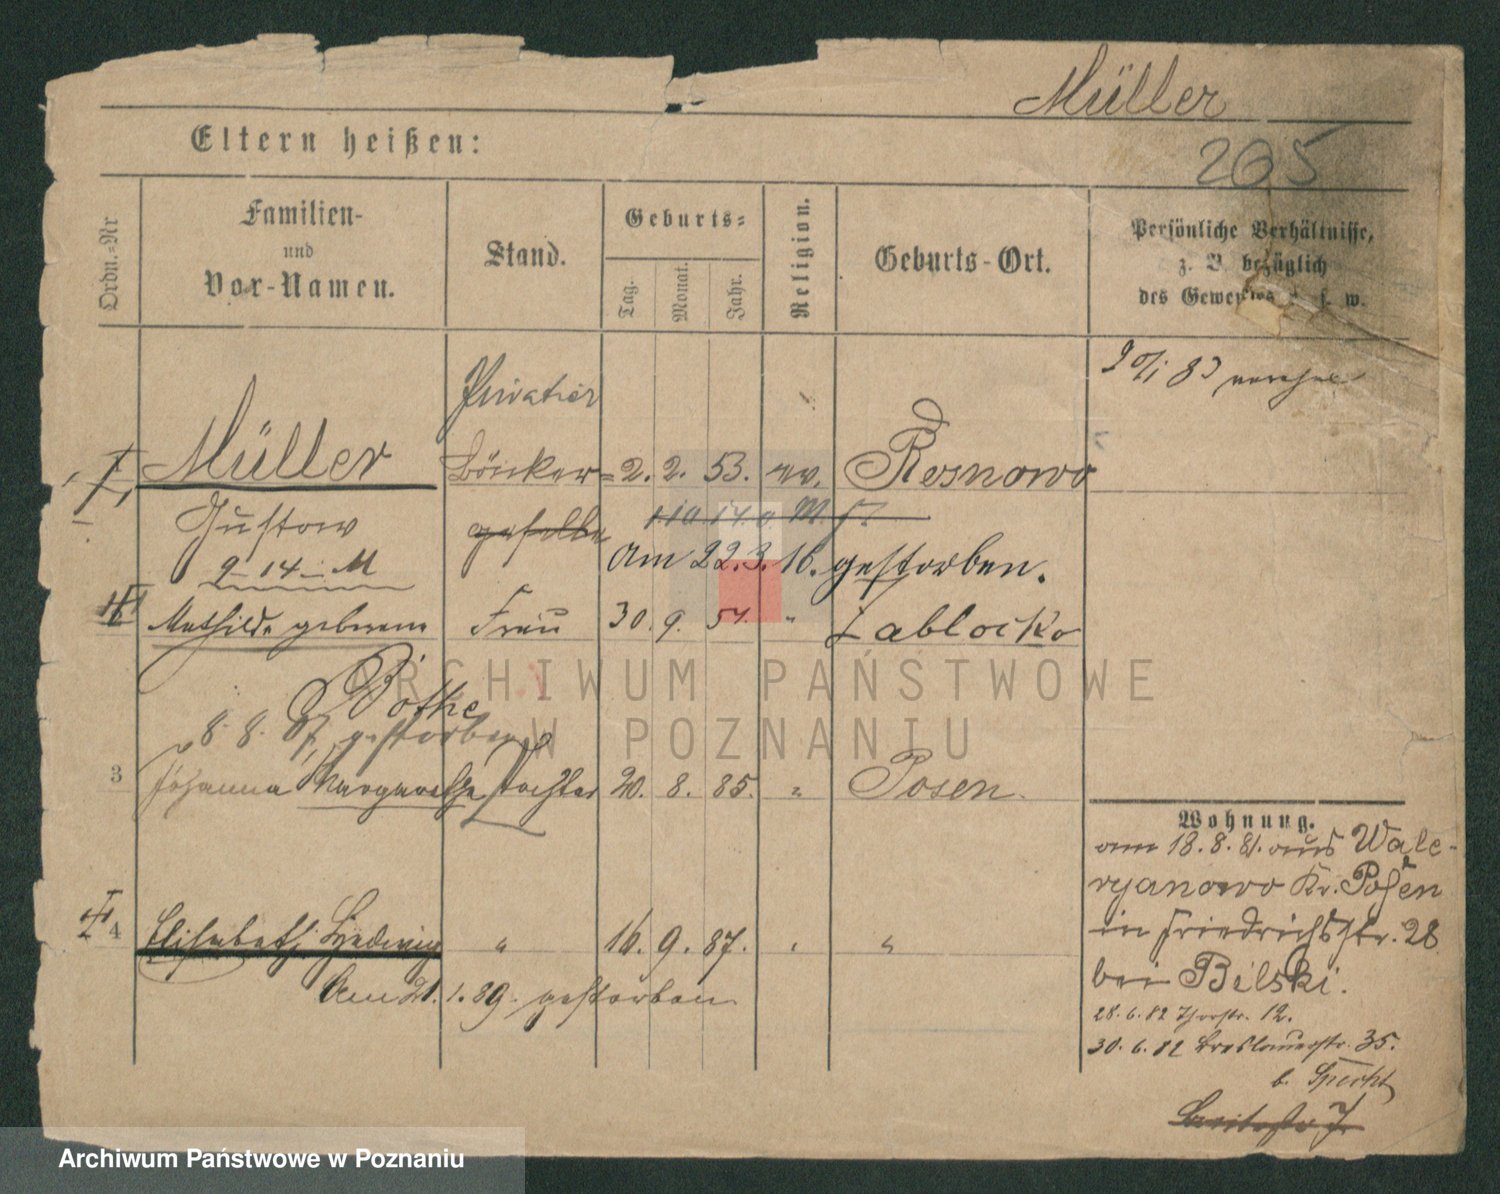 Müller
205
Eltern heißen:
Ordn.-Nr
Familien-
und
Vor-Namen.
Stand.
Geburts-
Tag.
Monat.
Jahr.
Religion.
Geburts-Ort.
Persönliche Verhältnisse,
z. B. bezüglich
des Gewerbes u. s. w.
83
Privatier
Müller
2. 2. 53. ev. Rosnowo
Gustav
geselle
9-14-M
am 22.3.16. gestorben.
Mathilde geborene Frau 30. 9. 51. " Zablocko
Bothe
8. 8. 87 gestorben
3 Johanna Margarethe Tochter 20. 8. 85. " Posen
4 Elisabeth Hedwig " 16. 9. 87. " "
Am 21. 1. 89. gestorben
Wohnung.
am 18. 8. 81. aus Wale-
ryanowo Kr. Posen
in Friedrichstr. 28
bei Bilski.
28. 6. 82 Thorstr. 12.
30. 6. 82 Breslauerstr. 35.
b. Specht
ARCHIWUM PAŃSTWOWE
W POZNANIU
Archiwum Państwowe w Poznaniu